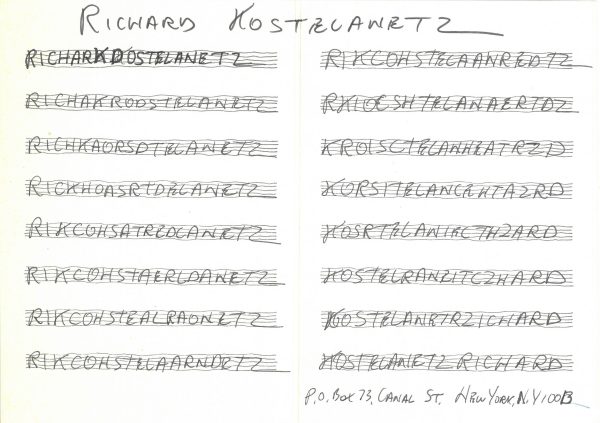 RICHARD KOSTELANETZ
RICHARKDOSTELANETZ
RICHAKRDOSTELANETZ
RICHKAORSDTELANETZ
RICKHOASRTDELANETZ
RIKCOHSATREDLANETZ
RIKCOHSTAERLDANETZ
RIKCOHSTEALRADNETZ
RIKCOHSTELAARNDETZ
RIKCOHSTELAANREDTZ
RKIOCSHTELANAERTDZ
KROISCTELANHEATRZD
KORSITELANCEHTAZRD
KOSRTELANIECTHZARD
KOSTELRANEITCZHARD
KOSTELANETRZICHARD
KOSTELANETZRICHARD
P.O. BOX 73, CANAL ST. NEW YORK, N.Y 10013